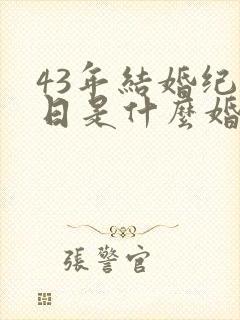 43年結婚纪
日是什麼婚
張警官